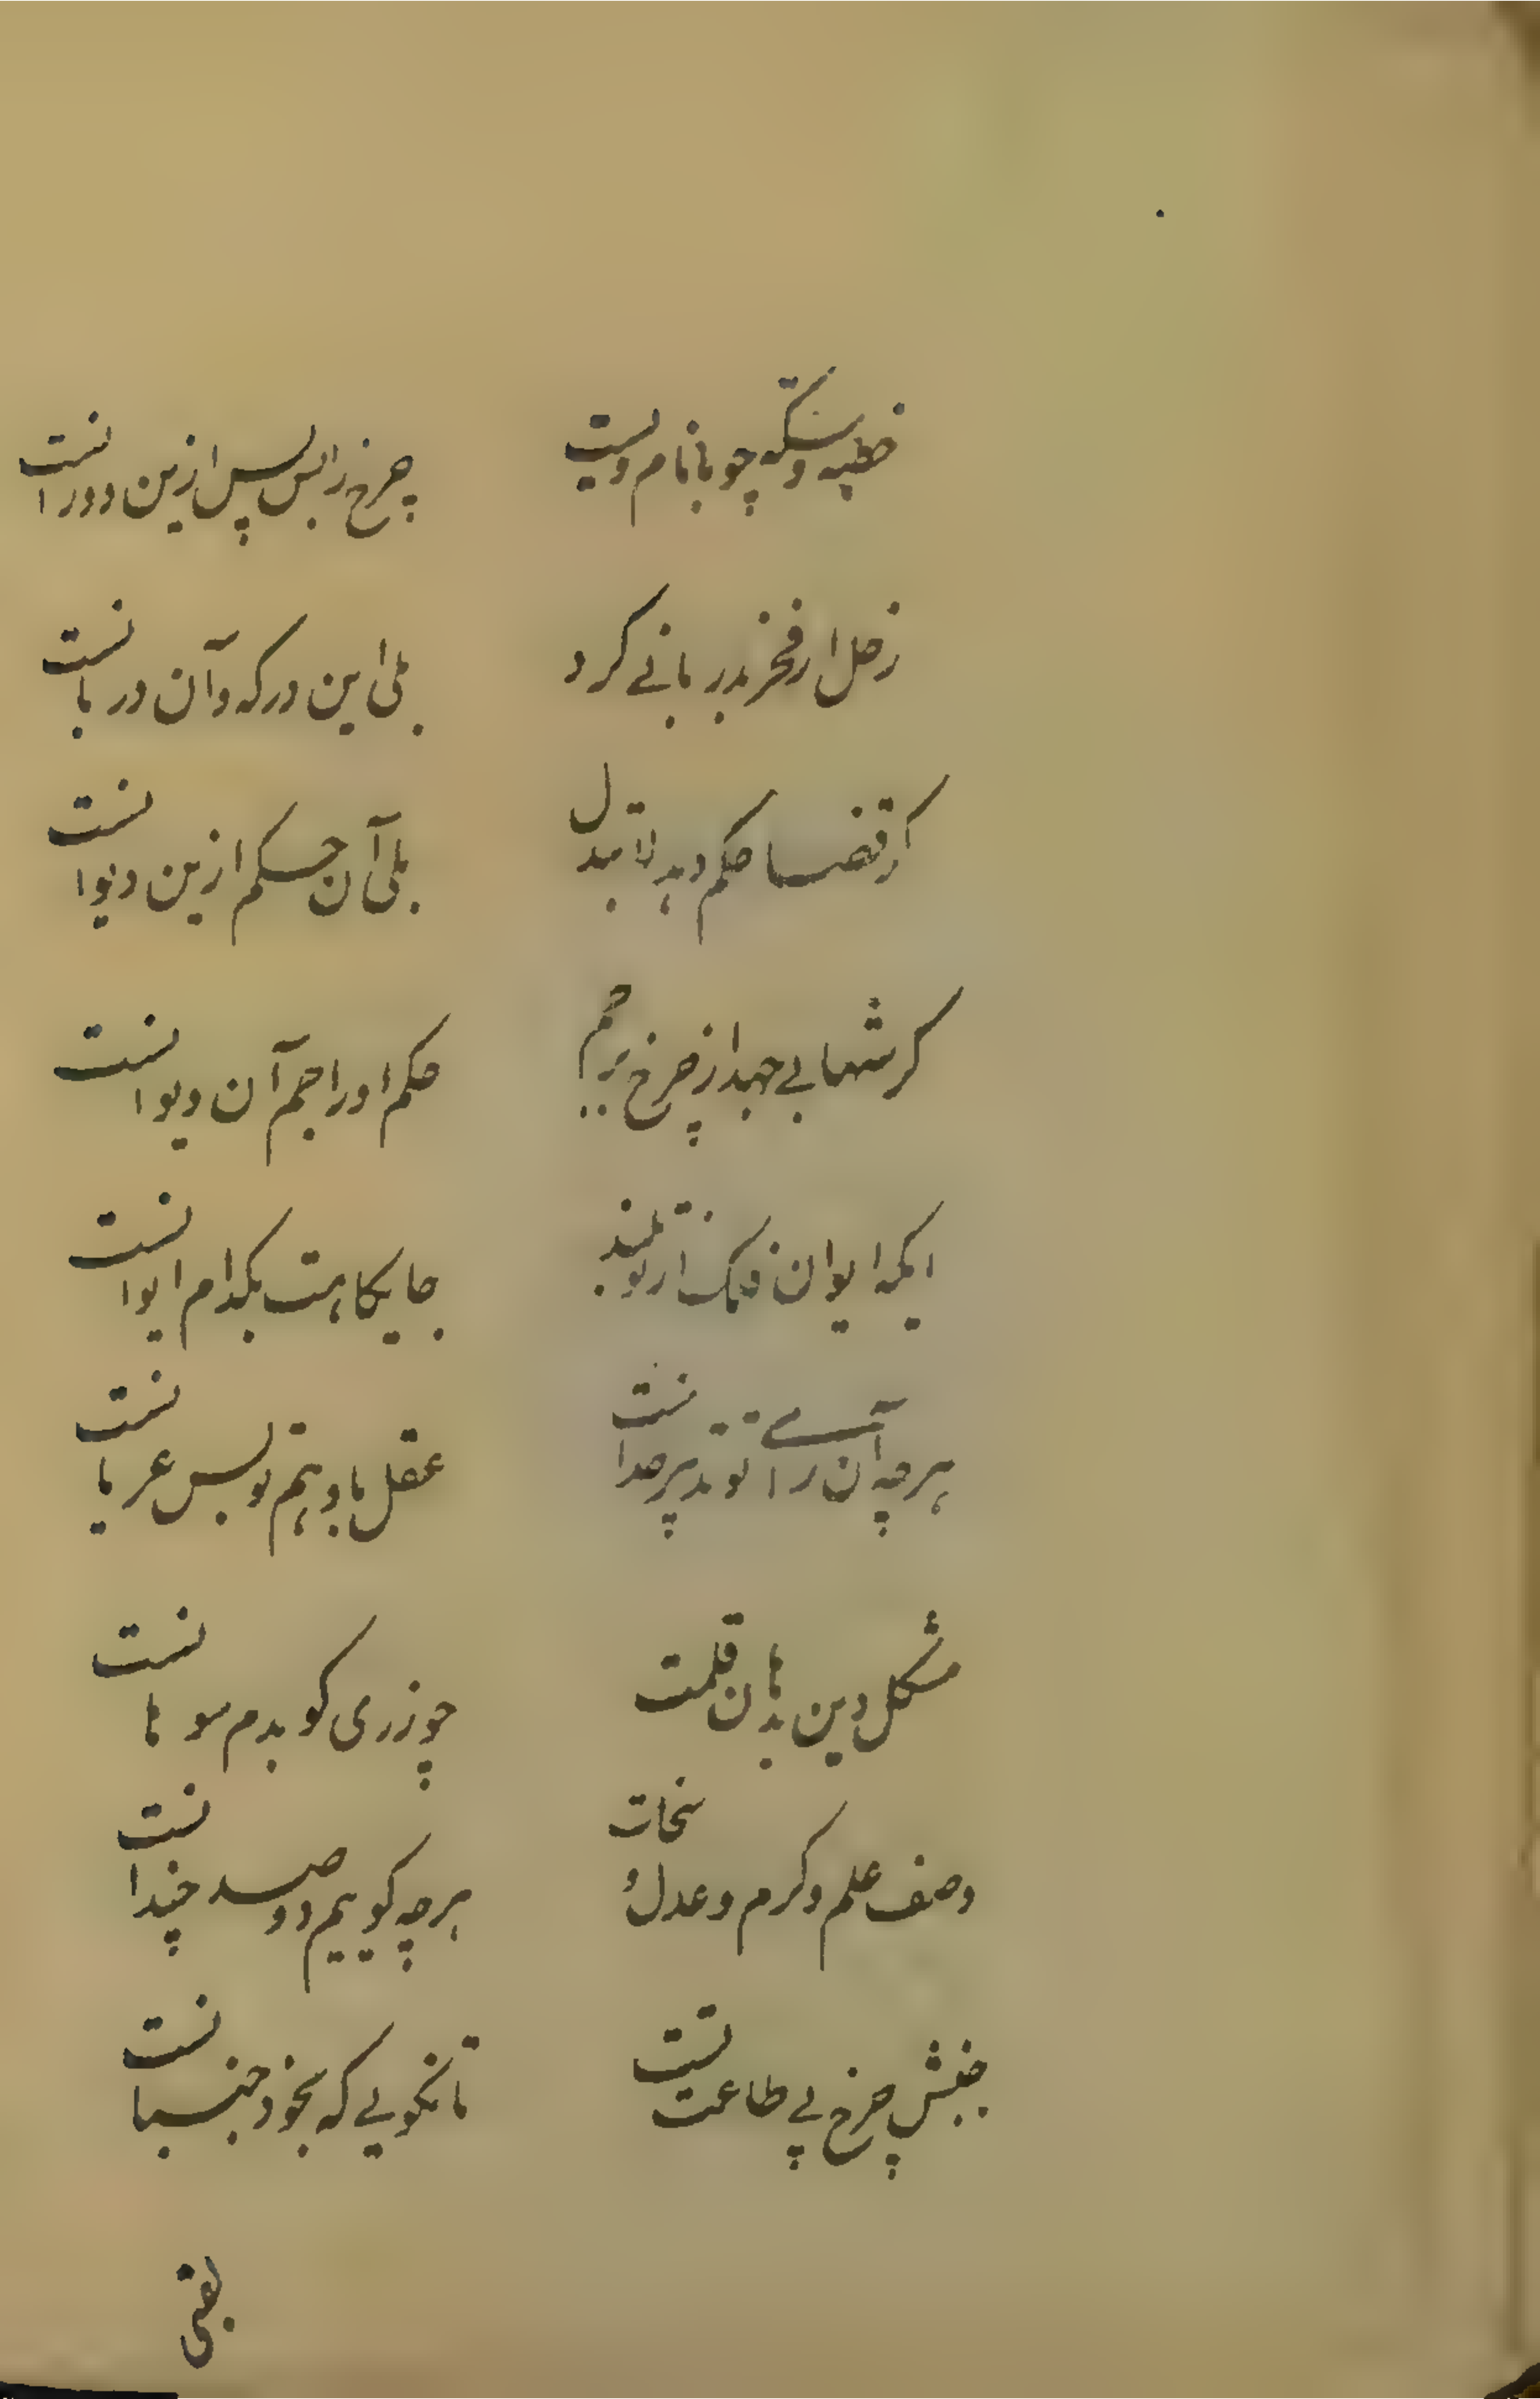 خطبه و سکه چو با نام ویست
چرخ را بس پس ازین دورانست
زحل ار فخر بدربانے کرد
بلی این درکه و آن دربانست
ار قضا حکم دهد لا تبدل
بلی آن حکم ازین دیوانست
کر شهابے جهد از چرخ برجم
حکم او راجم آن دیوانست
ایکه ایوان فلک از تو بلند
جایکاهت بکدام ایوانست
هرچه آن رائے تو تدبیر
عقل با وهم تو بس عریانست
مشکل دین بدهان قلمت
چو زری کو بدم سوهانست
وصف علم و کرم و عدل و سخات
هرچه کوییم دو صد چندانست
جنبش چرخ پے طاعت تست
تا نکویے که بخود جنبانست